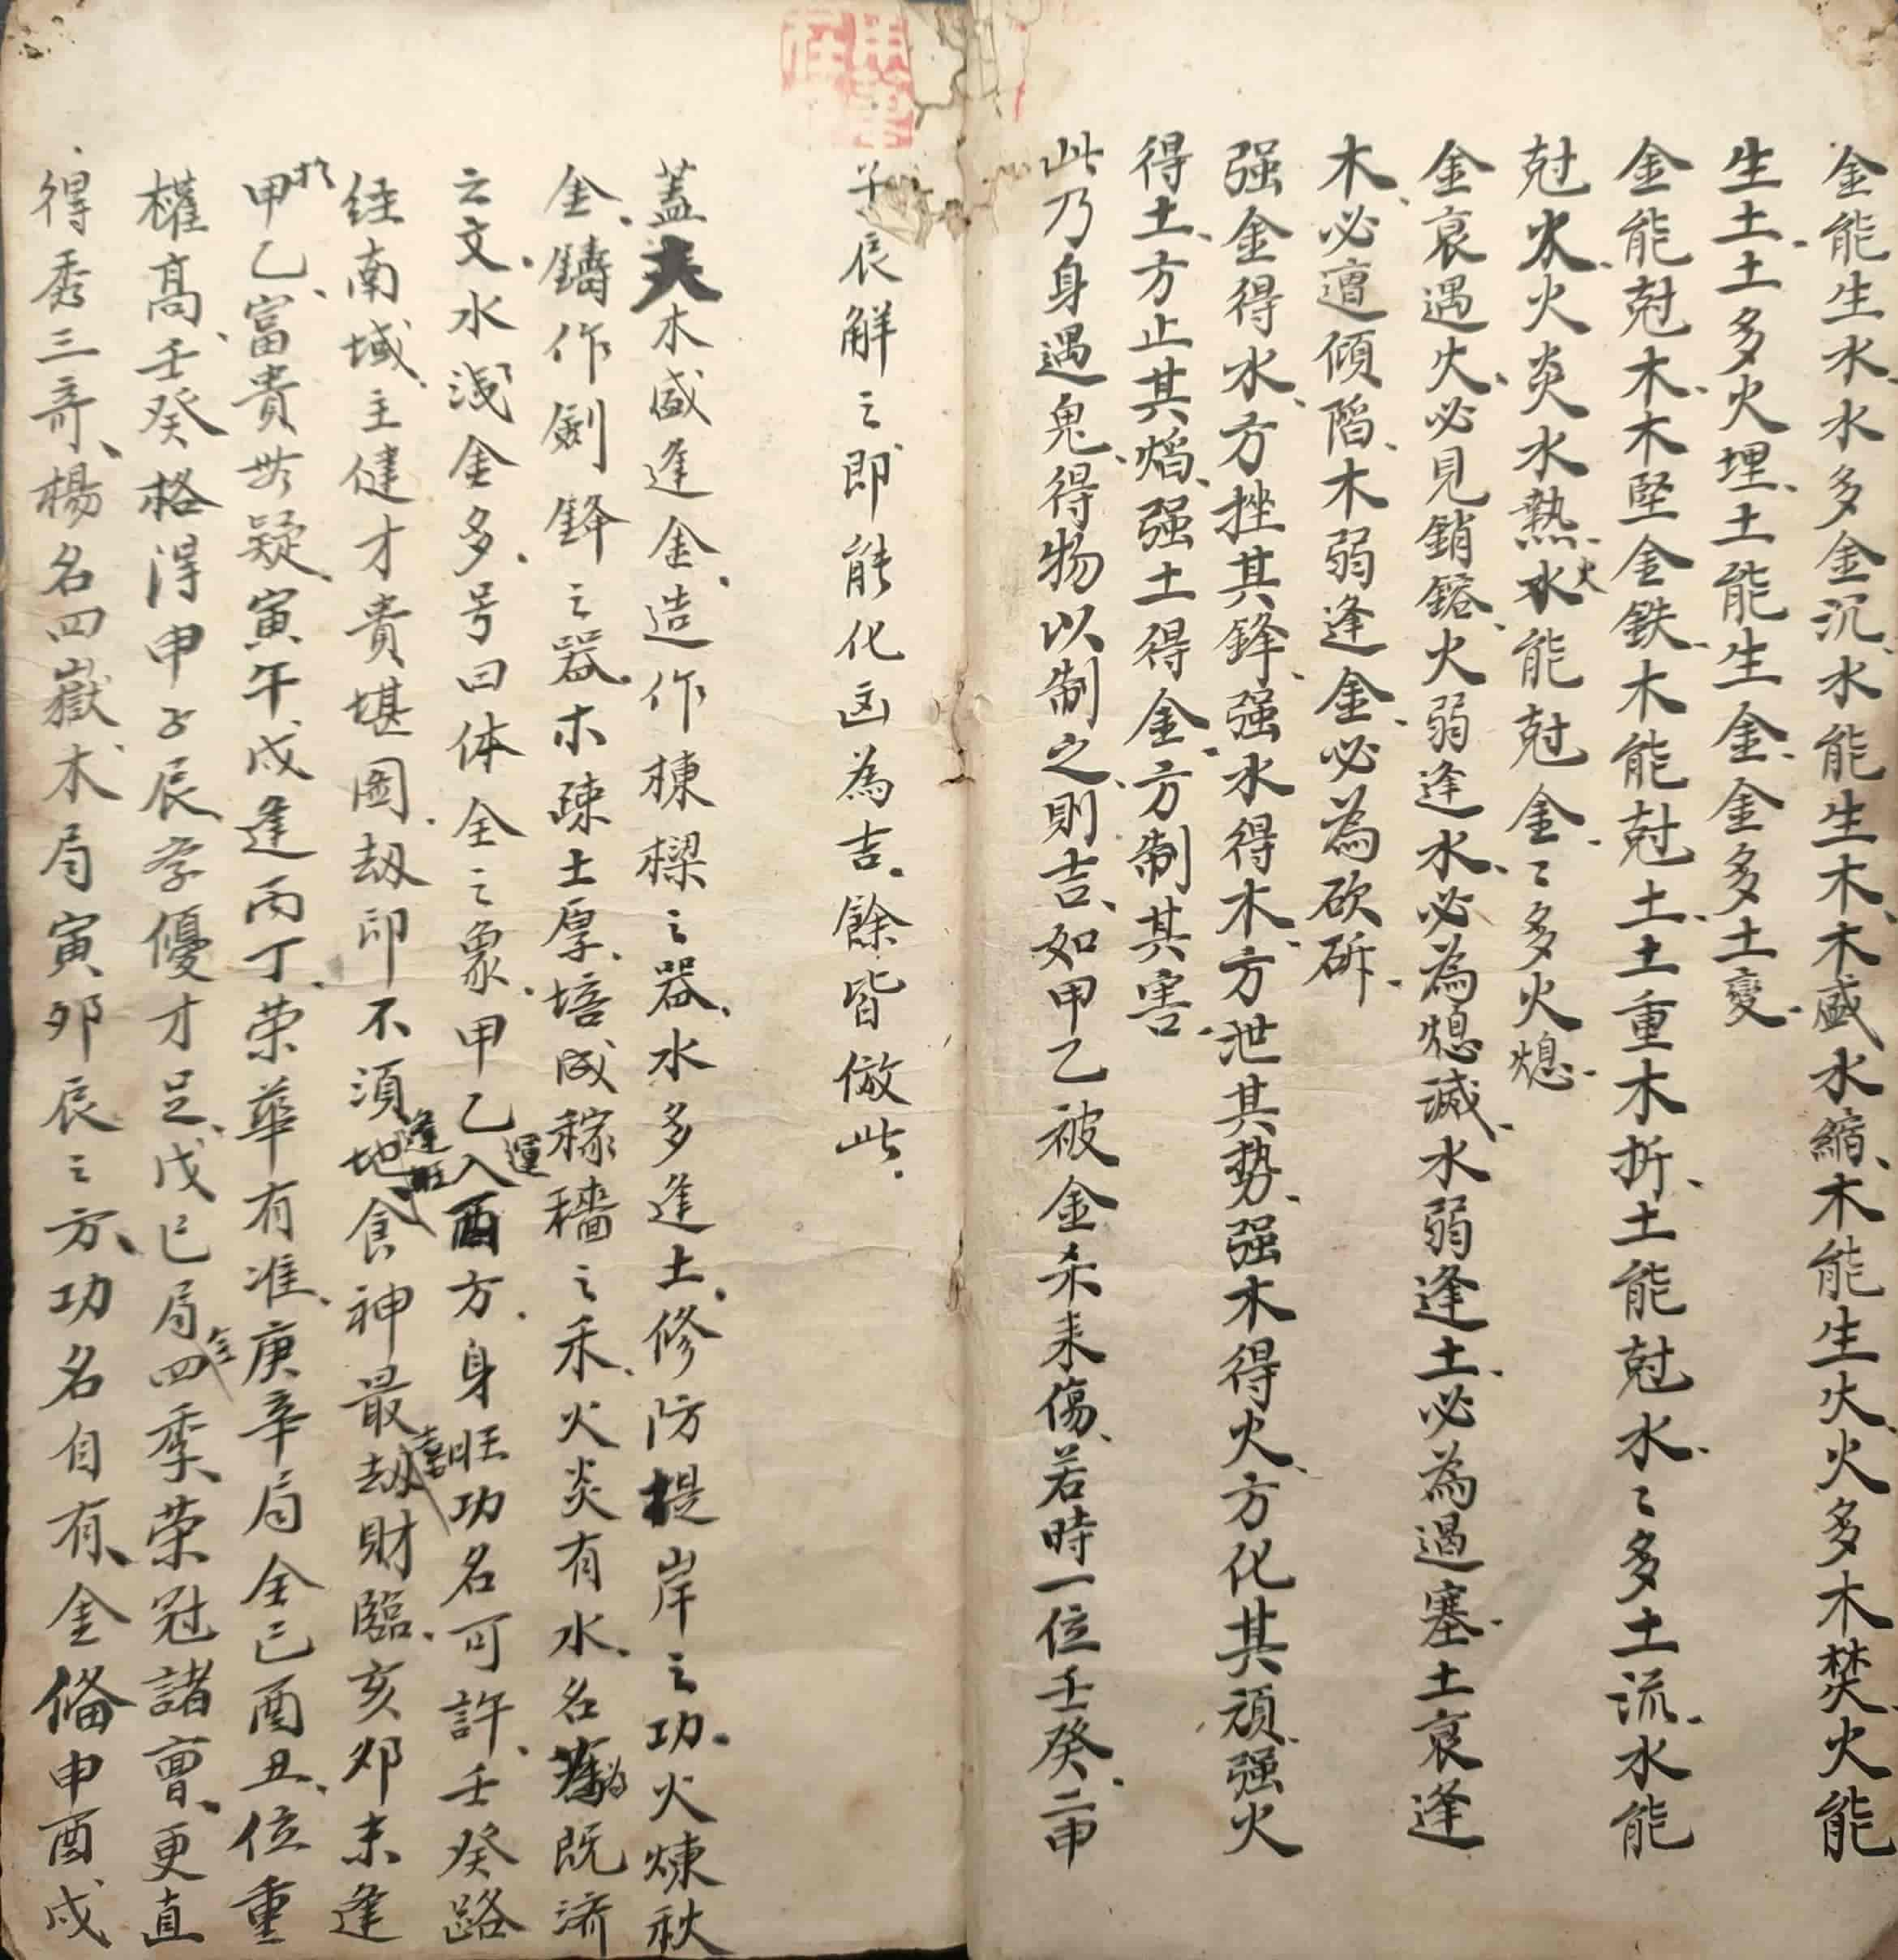 金能生水水多金沉水能生木木盛水縮木能生火火多木焚火能
生土土多火埋土能生金金多土變
金能尅木木堅金鉄木能尅土土重木折土能尅水〻多土流水能
尅火火炎水熱火能尅金〻多火熄
金衰遇火必見銷鎔火弱逢水必為熄滅水弱逢土必為遏塞土衰逢
木必遭傾陷木弱逢金必為砍斫
强金得水方挫其鋒强水得木方泄其势强木得火方化其頑强火
得土方止其焰强土得金方制其害
此乃身遇鬼得物以制之則吉如甲乙被金杀来傷若時一位壬癸二申
子辰解之即能化凶為吉餘皆倣此
蓋夫木盛逢金造作棟樑之器水多逢土修防堤岸之功火煉秋
金鑄作劍鋒之器木疎土厚培成稼穡之禾火炎有水名為既済
之文水浅金多号曰体全之象甲乙運入酉方身旺功名可許壬癸路
经南域主健才貴堪圖劫印不須逢旺地食神最喜劫財臨亥卯未逢
於甲乙富貴無疑寅午戌逢丙丁荣華有准庚辛局全巳酉丑位重
權髙壬癸格得申子辰学優才足戊己局全四季荣冠諸曹更直
得秀三竒楊名四嶽木局寅卯辰之方功名自有金俻申酉戌